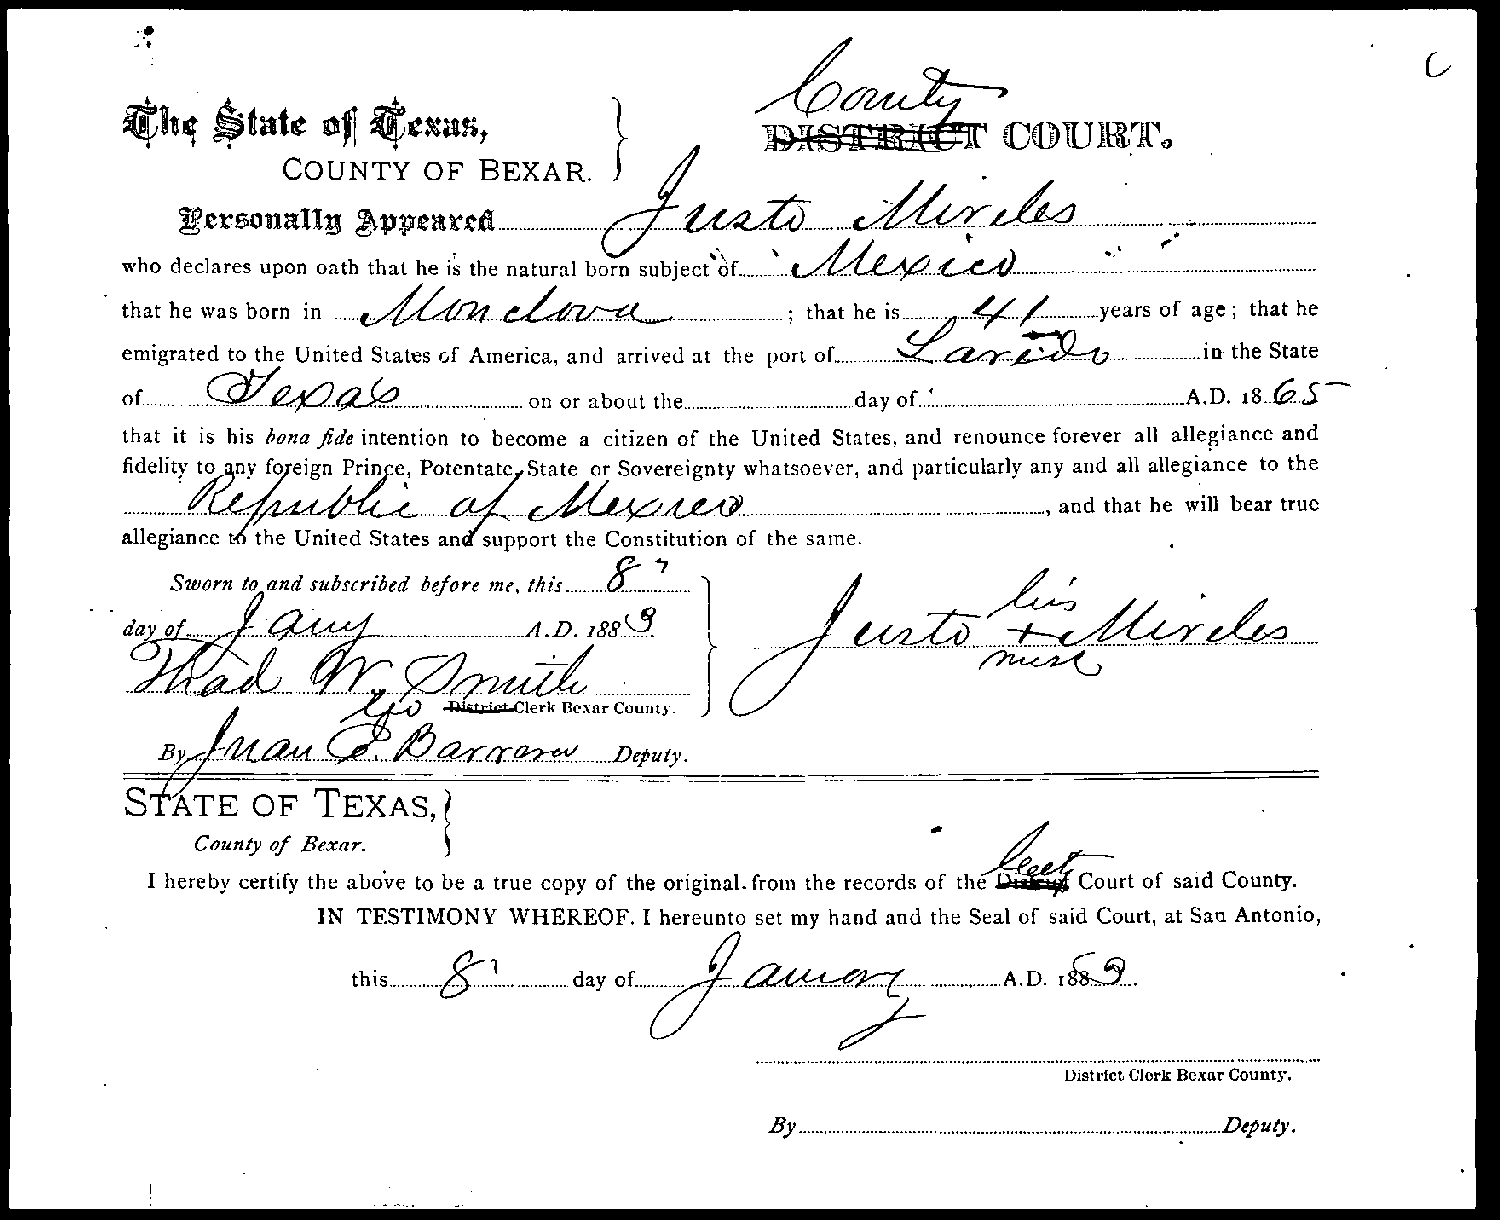 County
The State of Texas, } DISTRICT COURT.
COUNTY OF BEXAR.
Personally Appeared Justo Mireles
who declares upon oath that he is the natural born subject of Mexico
that he was born in Monclova ; that he is 41 years of age; that he
emigrated to the United States of America, and arrived at the port of Laredo in the State
of Texas on or about the day of A.D. 1865
that it is his bona fide intention to become a citizen of the United States, and renounce forever all allegiance and
fidelity to any foreign Prince, Potentate, State or Sovereignty whatsoever, and particularly any and all allegiance to the
Republic of Mexico, and that he will bear true
allegiance to the United States and support the Constitution of the same.
Sworn to and subscribed before me, this 8"
day of Jany A.D. 1883
his
Justo + Mireles
mark
Thad W. Smith
Co District Clerk Bexar County.
By Juan E. Barrera Deputy.
STATE OF TEXAS, }
County of Bexar.
I hereby certify the above to be a true copy of the original from the records of the County District Court of said County.
IN TESTIMONY WHEREOF, I hereunto set my hand and the Seal of said Court, at San Antonio,
this 8" day of January A.D. 1883.
District Clerk Bexar County.
By Deputy.